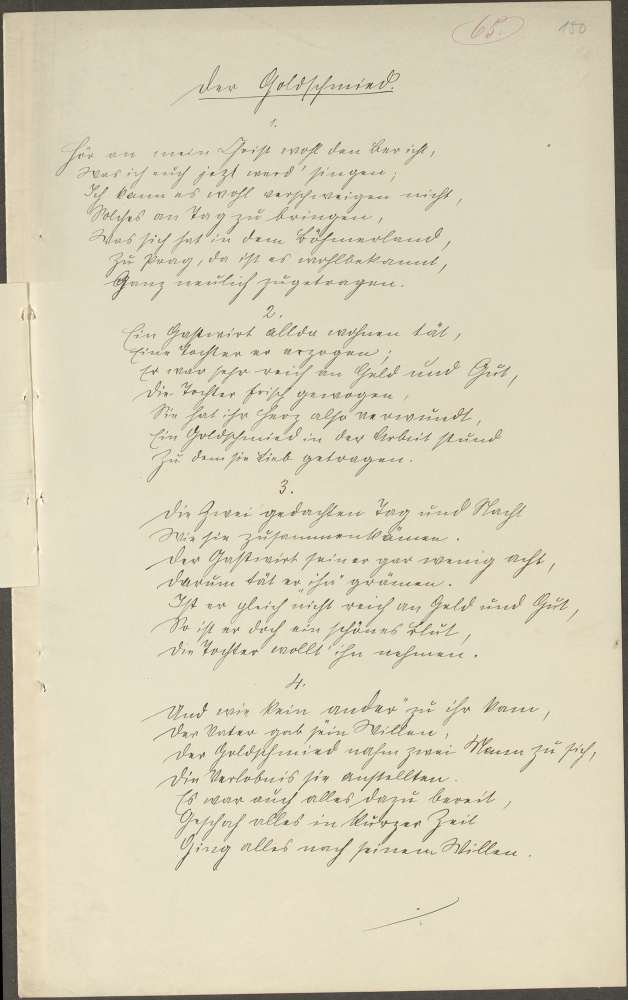 65.
150
Der Goldschmied.
1.
Hör an mein Christ wohl den Bericht,
Was ich euch jetzt werd' singen;
Ich kann es wohl verschweigen nicht,
Solches an Tag zu bringen,
Was sich hat in dem Böhmerland,
Zu Prag, da ist es wohlbekannt,
Ganz neulich zugetragen.
2.
Ein Gastwirt allda wohnen tät,
Eine Tochter er erzogen;
Er war sehr reich an Geld und Gut,
Die Tochter frisch gewogen,
Sie hat ihr Herz also verwundt,
Ein Goldschmied in der Arbeit stund
Zu dem sie Lieb getragen.
3.
Die Zwei gedachten Tag und Nacht
Wie sie zusammenkämen.
Der Gastwirt seiner gar wenig acht,
Darum tät er ihr grämen.
Ist er gleich nicht reich an Geld und Gut,
So ist er doch ein schönes Blut,
Die Tochter wollt ihn nehmen.
4.
Und wie kein ander zu ihr kam,
Der Vater gab sein Willen,
Der Goldschmied nahm zwei Mann zu sich,
Die Verlobnis sie anstellten.
Es war auch alles dazu bereit,
Geschah alles in kurzer Zeit
Ging alles nach seinem Willen.